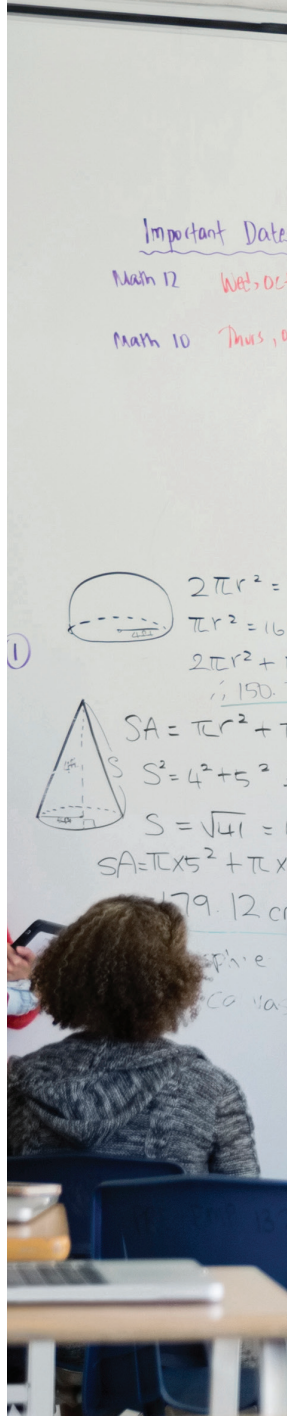 Important Date
Math 12 Wed, Oc
Math 10 Thurs,
2πr² =
πr² = 16
①
2πr² +
∴ 150.
SA = πr² + π
S
S² = 4² + 5²
S = √41 =
SA=π×5² + π×
179.12 c